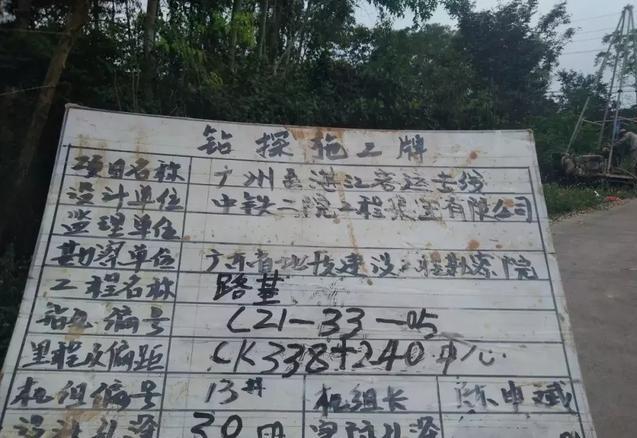 钻探施工牌
项目名称 广州至湛江客运专线
设计单位 中铁二院工程集团有限公司
监理单位
勘察单位 广东省地技建设工程勘察院
工程名称 路基
钻孔编号 CZ1-33-05
里程及偏距 CK338+240中心
机组编号 13# 机组长 陈申斌
设计孔深 30m